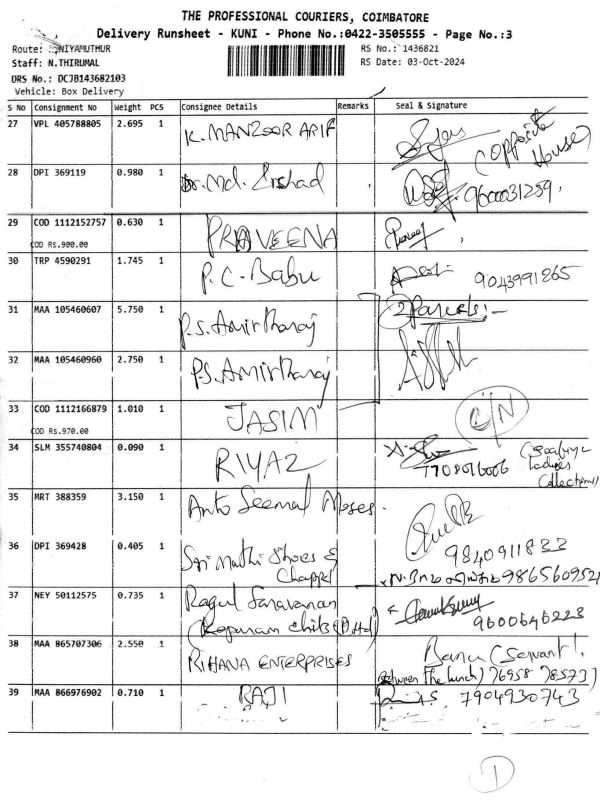 THE PROFESSIONAL COURIERS, COIMBATORE
Delivery Runsheet - KUNI - Phone No.:0422-3505555 - Page No.:3
Route: NIYAMUTHUR
RS No.: 1436821
Staff: N.THIRUMAL
RS Date: 03-Oct-2024
DRS No.: DCJB143682103
Vehicle: Box Delivery
S No Consignment No Weight PCS Consignee Details Remarks Seal & Signature
27 VPL 405788805 2.695 1 K. MANZOOR ARIF (opposite House)
28 DPI 369119 0.980 1 Dr. Md. Ershad 9600031259
29 COD 1112152757 0.630 1 PRAVEENA
COD Rs.900.00
30 TRP 4590291 1.745 1 P.C. Babu 9043991265
31 MAA 105460607 5.750 1 P.S. Amirtharaj 2 Parcels:-
32 MAA 105460960 2.750 1 P.S. Amirtharaj
33 COD 1112166879 1.010 1 JASIM C/N
COD Rs.970.00
34 SLM 355740804 0.090 1 RIYAZ 7708016006 Ladies Collections)
35 MRT 388359 3.150 1 Anto Seemal Moses.
9840911833
36 DPI 369428 0.405 1 Sri Mathi Shoes & Chappel 9865609521
37 NEY 50112575 0.735 1 Ragul Saravanan 9600646223
38 MAA 865707306 2.550 1 RIHANA ENTERPRISES Banu (Servant).
(Between The Lunch) 76958 78573)
39 MAA 866976902 0.710 1 RAJI 7904930743
1